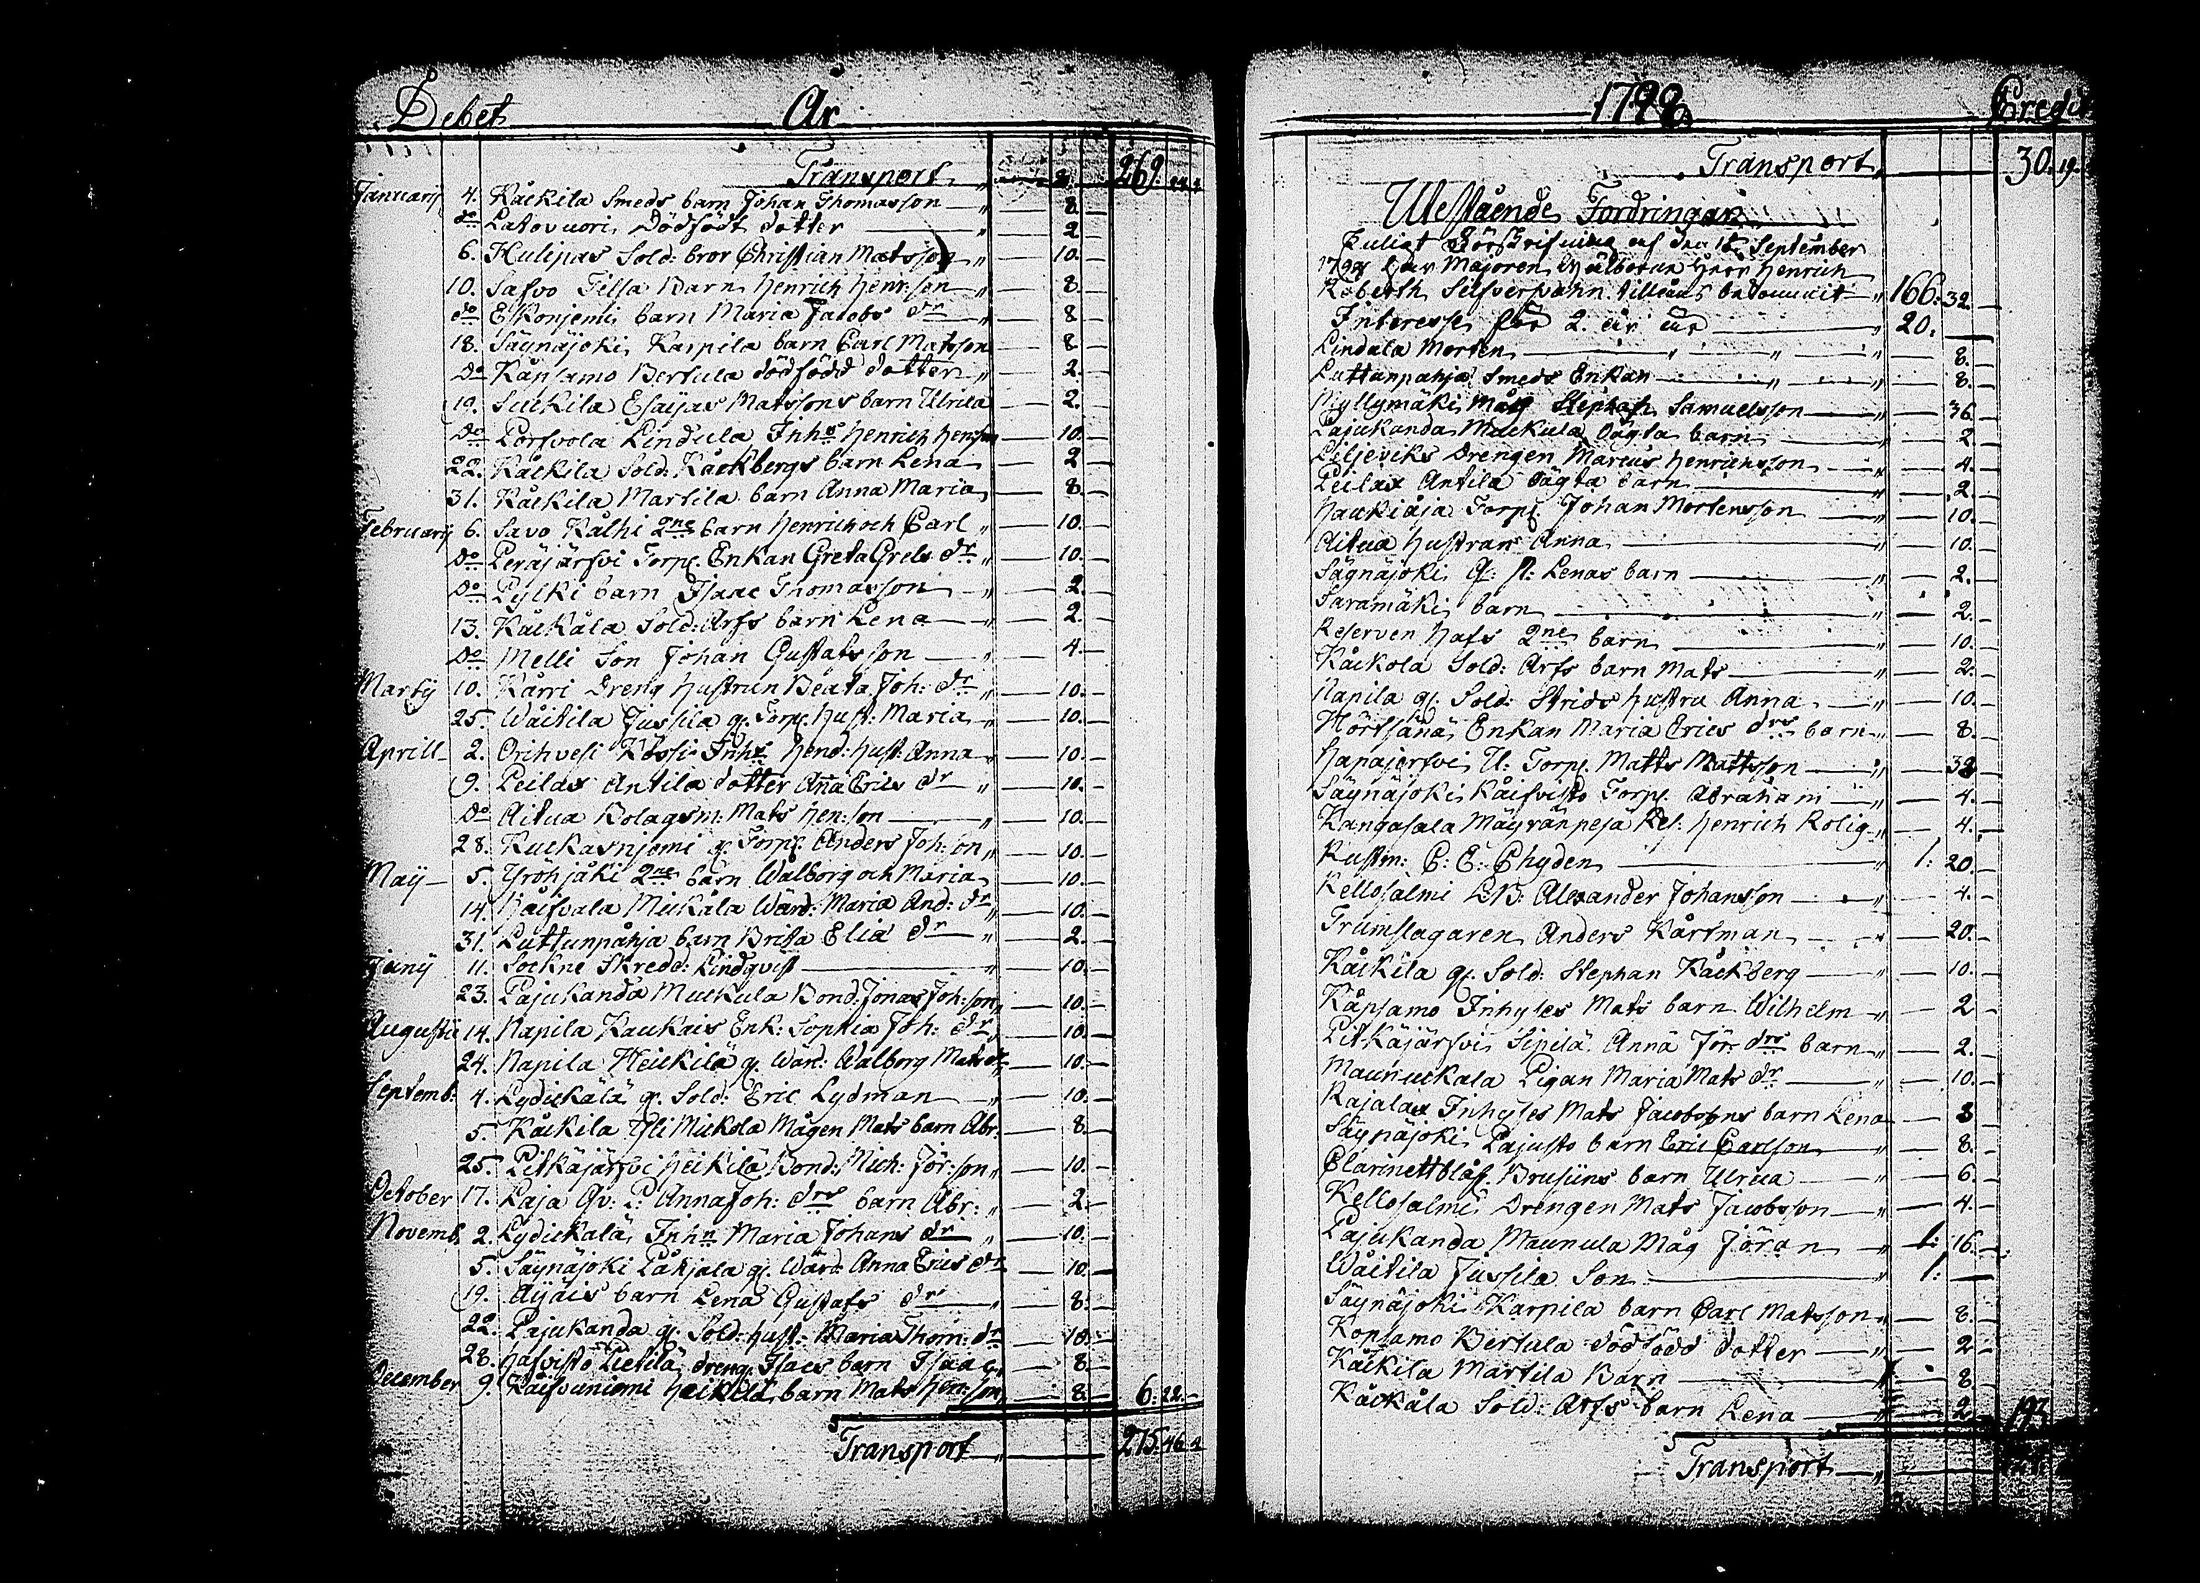 Debet År
Transport 269.
Januarij 4. Kåckila Smeds barn Johan Thomasson 8.
do Latovuori Dödfödt dotter 2
6. Hulipas Sold: bror Christian Matsson 10.
10. Safvo Tilla Barn Henrich Henr:son 8.
do Eskonjemi barn Maria Jacobs dr 8
18. Säynäjoki Karpila barn Carl Matsson 8
Do Kåpsamo Bertula dödfödd dotter 2.
19. Suckila Esaijas Matssons barn Ulrica 2.
Do Porsvola Lindula Inhs Henrich Henrson 10.
22. Kåckila Sold: Kåckbergs barn Lena 2
31. Kåckila Martila barn Anna Maria 8.
Februarij 6. Savo Kålhi 2ne barn Henrich och Carl 10.
Do Peräjärfvi Torp. Enkan Greta Grels dr 10.
Do Pylki barn Isaac Thomasson 2.
13. Kåckåla Sold: Arfs barn Lena 2.
Do Melli Son Johan Gustafsson 4.
Martij 10. Kårri Dreng Hustrun Beata Joh: dr 10.
25. Wåitila Jussila g. Torp. Hust: Maria 10.
Aprill 2. Orihvesi Kåssi Inhs Hend: Hust: Anna 10.
9. Peilax Antila dotter Ana Erics dr 10.
Do Aitua Bolagsm: Mats Hen:son 10.
28. Kuckasnjemi g. Torp. Anders Joh:son 10.
Maij 5. Yröhjåki 2ne barn Walborg och Maria 10.
14. Haisvala Mickåla Wärd: Maria And: dr 10.
31. Luttunpåhja barn Brita Elia dr 2.
Junij 11. Sockne Skredd: Lindqvist 10.
23. Pajukanda Muckula Bond: Jonas Joh:son 10.
Augustii 14. Napila Kaukais Enk: Sophia Joh: dr 10.
24. Napila Heickilä g. Wärd: Walborg Mats dr 10.
Septemb: 4. Lydickälä g. Sold: Eric Lydman 10.
5. Kåckila Yli Mickola Mågen Mats barn Abr: 8.
25. Pitkäjärfvi Heikilä Bond: Mich: Jör:son 10.
October 17. Laja Qv: P: Anna Joh: drs barn Abr: 2.
Novemb. 2. Lydickälä Inhn Maria Johans dr 10.
5. Säynäjoki Påhjala g. Wärd: Anna Erics dr 10.
19. Äijäis barn Lena Gustafs dr 8.
22. Pajukanda g. Sold: Hust: Maria Thom: dr 10.
28. Hafvisto Pietilä dreng Isacs barn Isaac 8.
December 9. Kåifvuniemi Heickilä barn Mats Hen:son 8. 6. 22.
Transport 275. 46.
1798 Credit
Transport 30. 19.
Utestående Fordringar
Enligt Förskrifning af den 15 September
Har Majoren Wälborne Herr Henrich
Roberth Silfverspahn tillånas bekommit 166. 32.
Interesse för 2. år 20.
Lindala Morten 8.
Luttunpahja Smeds Enkan 8.
Myllymäki Måg Stephan Samuelsson 36
Pajukanda Muckula Oägta barn 2
Liljeviks Drengen Marcus Henrichsson 4.
Peilax Antila Oägta barn 2
Haukiåja Torp. Johan Mortensson 10.
Aitua Hustran Anna 10.
Säynäjoki Q: P: Lenas barn 2.
Saramäki barn 2.
Reserven Hafs 2ne barn 10.
Kåckola Sold: Arfs barn Mats 2.
Napila g. Sold: Strids Hustru Anna 10.
Hörtsänä Enkan Maria Erics drs barn 8.
Hapajerfvi U. Torp. Matts Mattsson 32
Säynäjoki Kåifvisto Torp. Abraham 4.
Kangasala Mäyränpeja Res: Henrich Rolig 4.
Rustm: C: E: Chyden 1: 20.
Kellosalmi LB: Alexander Johansson 4.
Trumslagaren Anders Kårtman 20.
Kåckila g. Sold: Stephan Kåckberg 10.
Kåpsamo Inhyses Mats barn Wilhelm 2
Pitkäjärfvi Sipilä Anna Jör: drs barn 2.
Maunuckala Pigan Maria Mats dr 10.
Rajalax Inhyses Mats Jacobssons barn Lena 3
Säynäjoki Pajusto barn Eric Carlson 8.
Clarinettblås. Brusiins barn Ulrica 6.
Kellosalmi Drengen Mats Jacobsson 4.
Pajukanda Maunula Måg Jöran 1: 16.
Wåitila Jussila Son 1:
Säynäjoki Karpila barn Carl Matsson 8.
Kopsamo Bertula dödfödd dotter 2
Kåckila Martila Barn 8
Kåckåla Sold: Arfs barn Lena 2 193
Transport